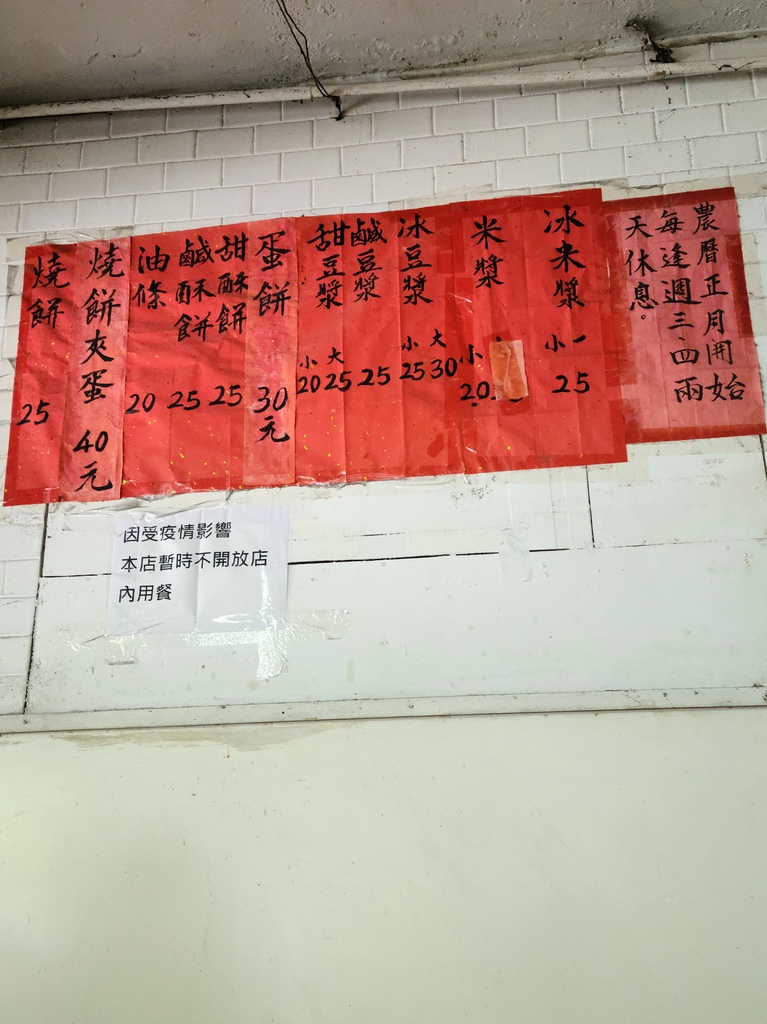 農曆正月開始
每逢週三四兩
天休息。
冰米漿 小 25
米漿 小20
冰豆漿 大30 小25
鹹豆漿 25
甜豆漿 大25 小20
蛋餅 30元
甜酥餅 25
鹹酥餅 25
油條 20
燒餅夾蛋 40元
燒餅 25
因受疫情影響
本店暫時不開放店
內用餐